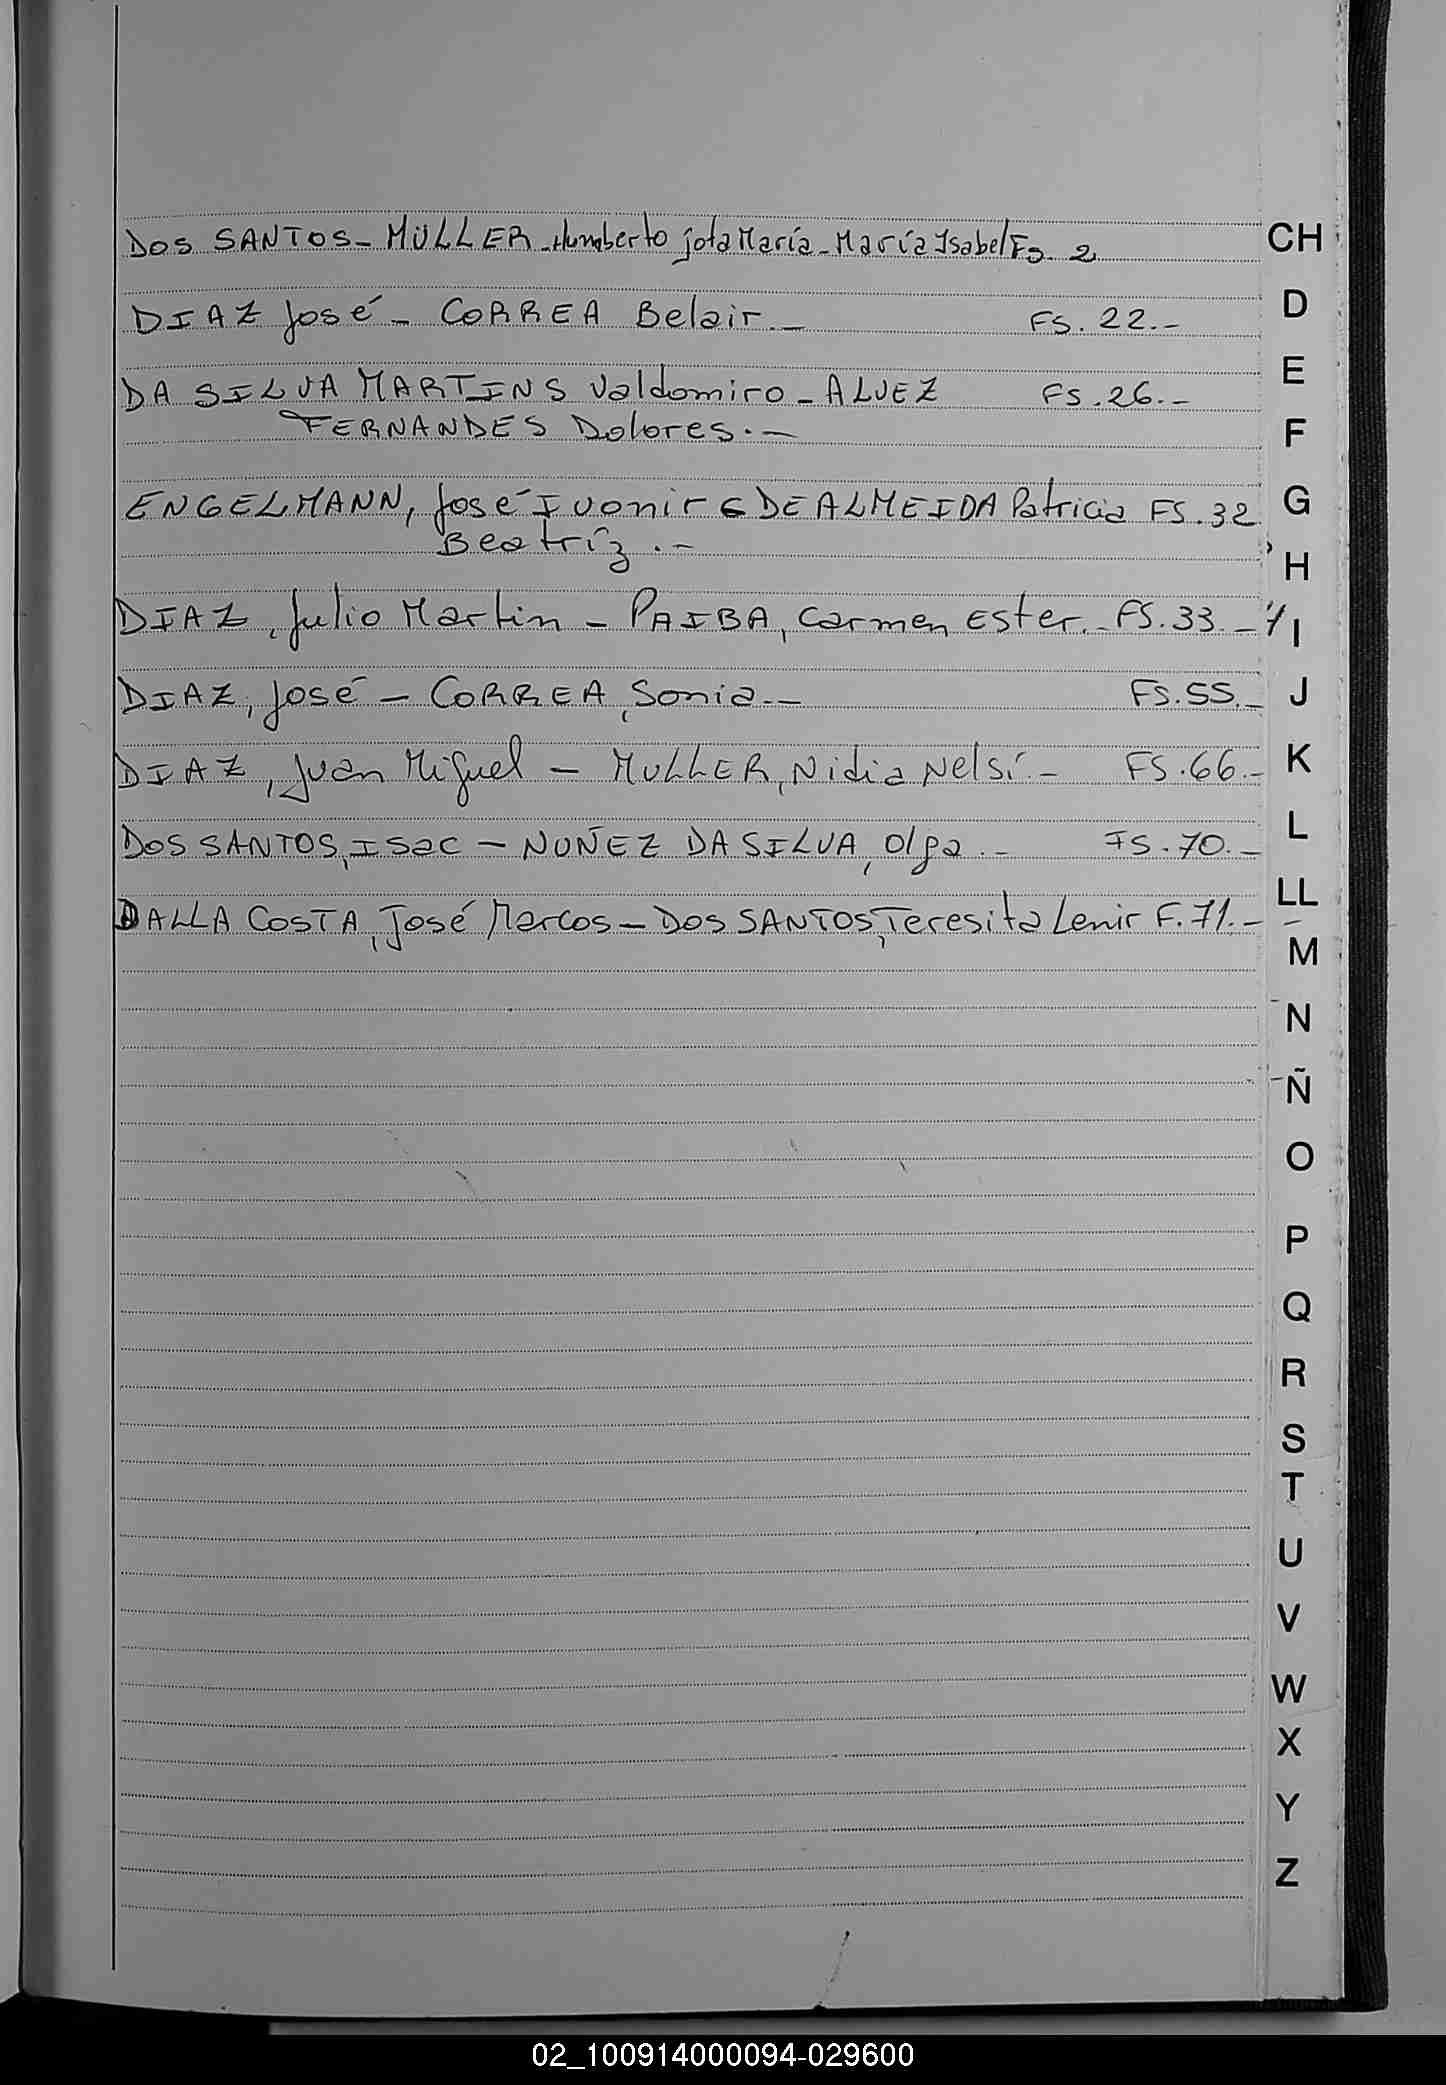 DOS SANTOS - MULLER - Humberto jota María - María Isabel Fs. 2
DIAZ José - CORREA Belair. - FS. 22. -
DA SILVA MARTINS Valdomiro - ALVEZ FS. 26. -
FERNANDES Dolores. -
ENGELMANN, José Ivonir DE ALMEIDA Patricia FS. 32
Beatríz. -
DIAZ, Julio Martin - PAIBA, Carmen Ester. - FS. 33. -
DIAZ, José - CORREA, Sonia. - FS. 55. -
DIAZ, Juan Miguel - MULLER, Nidia Nelsí. - FS. 66. -
DOS SANTOS, Isac - NUÑEZ DA SILVA, Olga. - FS. 70. -
DALLA COSTA, José Marcos - DOS SANTOS, Teresita Lenir F. 71. -
CH
D
E
F
G
H
I
J
K
L
LL
M
N
Ñ
O
P
Q
R
S
T
U
V
W
X
Y
Z
02_100914000094-029600